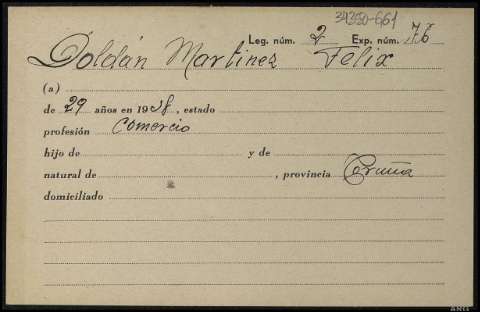 34350-661
Leg. núm. 2 Exp. núm. 76
Doldán Martinez Felix
(a)
de 29 años en 1938, estado
profesión Comercio
hijo de y de
natural de , provincia Coruña
domiciliado